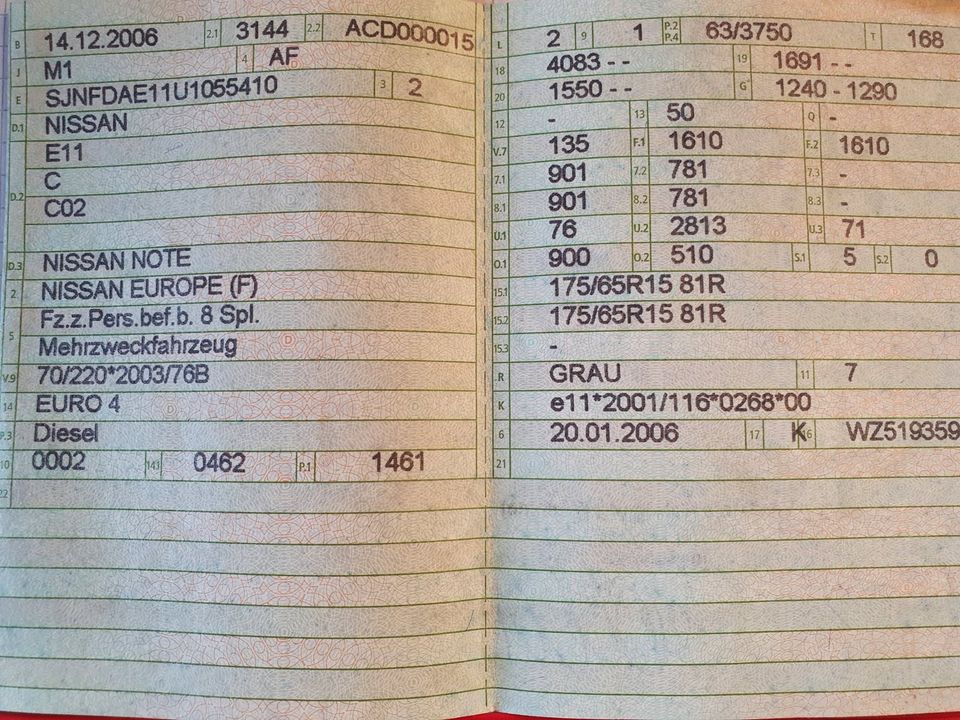 B 14.12.2006 2.1 3144 2.2 ACD000015
J M1 4 AF
E SJNFDAE11U1055410 3 2
D.1 NISSAN
E11
D.2 C
C02
D.3 NISSAN NOTE
2 NISSAN EUROPE (F)
5 Fz.z.Pers.bef.b. 8 Spl.
Mehrzweckfahrzeug
V.9 70/220*2003/76B
14 EURO 4
P.3 Diesel
10 0002 14.1 0462 P.1 1461
22
L 2 9 1 P.2 P.4 63/3750 T 168
18 4083 - - 19 1691 - -
20 1550 - - G 1240 - 1290
12 - 13 50 Q -
V.7 135 F.1 1610 F.2 1610
7.1 901 7.2 781 7.3 -
8.1 901 8.2 781 8.3 -
U.1 76 U.2 2813 U.3 71
O.1 900 O.2 510 S.1 5 S.2 0
15.1 175/65R15 81R
15.2 175/65R15 81R
15.3 -
R GRAU 11 7
K e11*2001/116*0268*00
6 20.01.2006 17 K 16 WZ519359
21